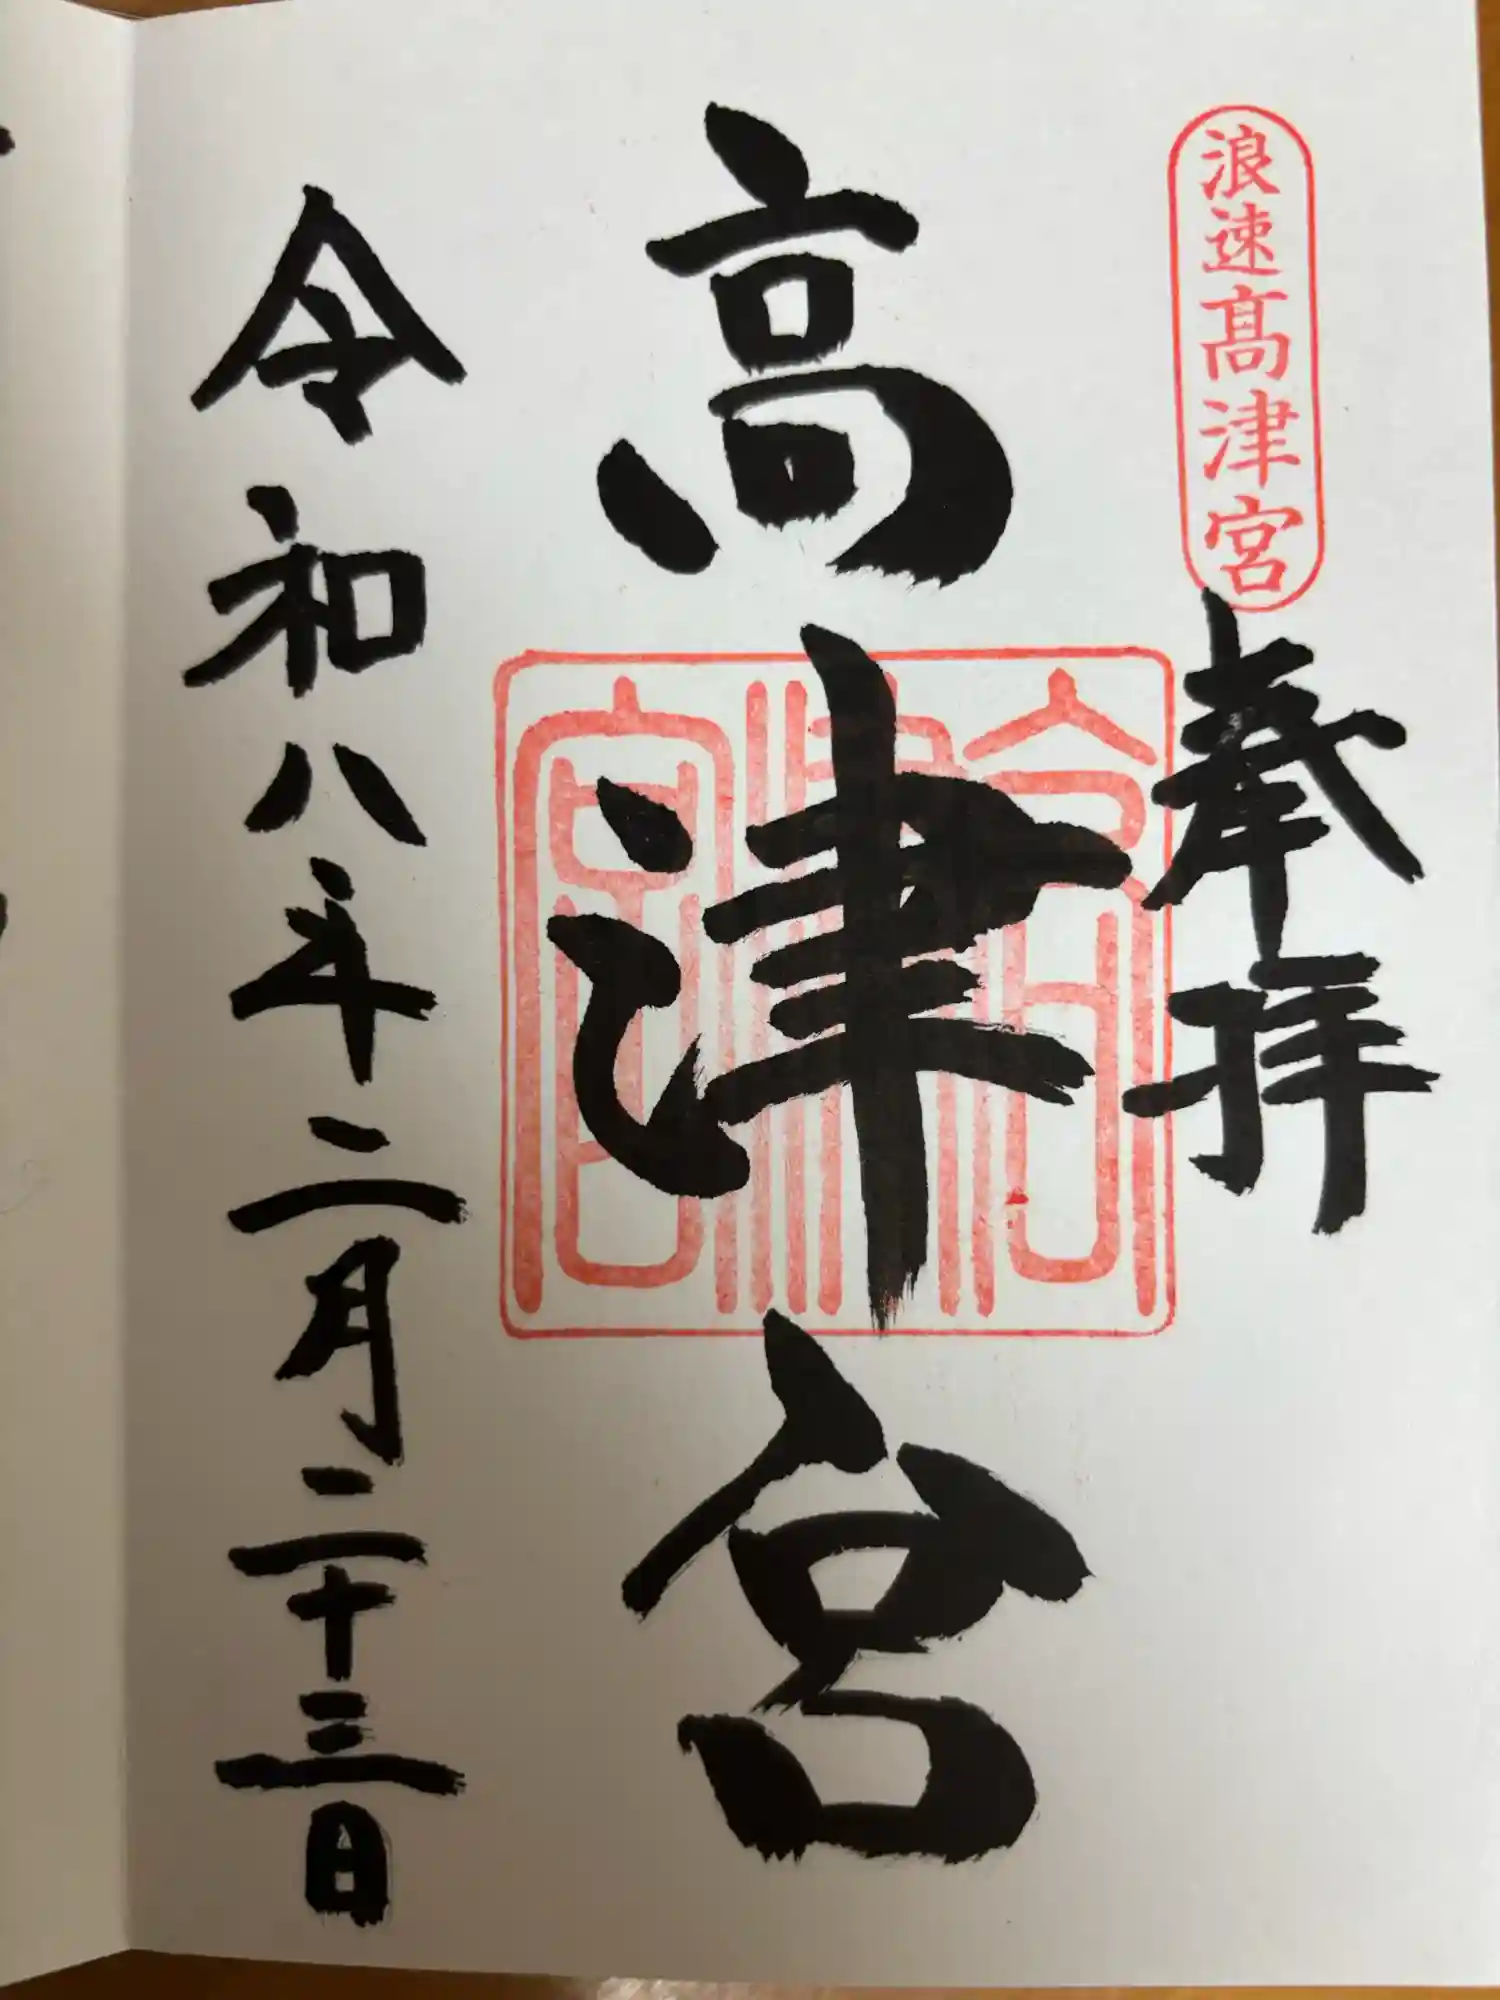 浪速髙津宮
奉拝
高津宮
高津宮
令和八年二月二十三日